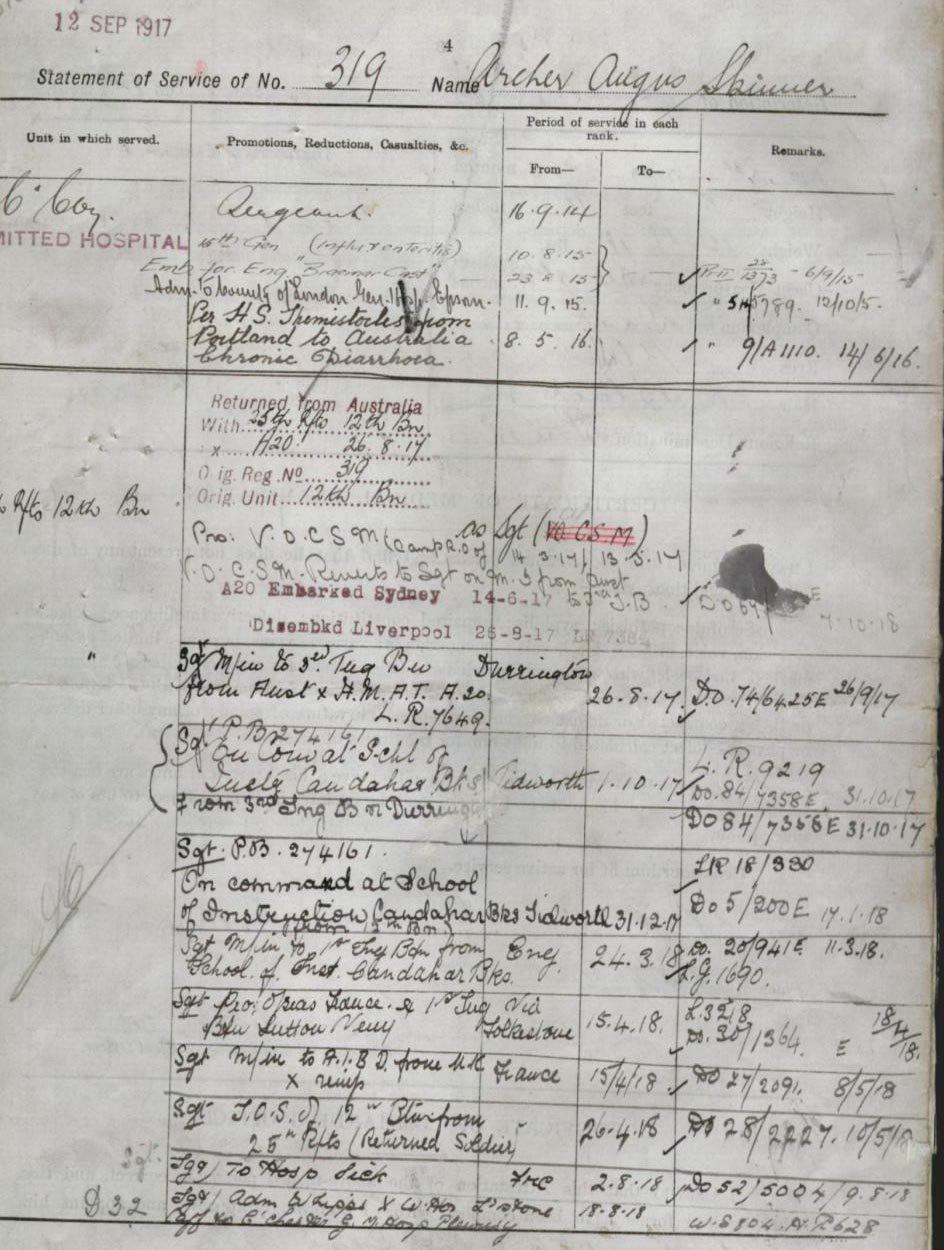 12 SEP 1917
4
Statement of Service of No. 319 Name Archer Angus Skinner
Unit in which served.
Promotions, Reductions, Casualties, &c.
Period of service in each rank.
From—
To—
Remarks.
"C" Coy. Sergeant. 16.9.14
MITTED HOSPITAL 15th Gen (Influx enteritis) 10.8.15
Emb for Eng "Braemar Cast" 23.8.15 - 6/9/15
Adm. to County of London Gen. Hosp. Epsom. 11.9.15. " 12/10/5.
Per H.S. Themistocles from
Portland to Australia 8.5.16. " 9/A1110. 14/6/16.
Chronic Diarrhoea.
Returned from Australia
With 25th Rfts 12th Bn
x A20 26.8.17
Orig. Reg. No 319
Orig. Unit. 12th Bn
Rfts 12th Bn
as Sgt (V.O.C.S.M)
Pro: V.O.C.S.M (Camp R.O of 14.3.17) 13.5.17
V.O.C.S.M. Reverts to Sgt on from Aust
A20 Embarked Sydney 14-6-17 to 3rd T.B. DO 69/ E
7.10.18
Disembkd Liverpool 26-8-17
" Sgt M/in to 3rd Tng Bn Durrington
from Aust x H.M.A.T. A.20. 26.8.17 D.O. 74/6425E 26/9/17
L.R. 7649.
Sgt P.B. 274161
On Com at Schl of L.R. 9219
Candahar Bks Tidworth 1.10.17 Do. 84/7358E 31.10.17
From 3rd Tng Bn Durrington Do 84/7358E 31.10.17
Sgt. P.B. 274161.
On command at School LR 18/330
of Instruction Candahar Bks Tidworth 31.12.17 Do 5/200E 17.1.18
(from 12th Bn)
Sgt M/in to 1st Tng Bn from Eng 24.3.18 Do. 20/941E 11.3.18.
School of Inst. Candahar Bks. L.G. 1690.
Sgt Pro. O/seas France. ex 1st Tng Via L.3218
Bn Sutton Veny Folkestone 15.4.18. Do. 30/1364. E 18/4/18.
Sgt M/in to A.I.B.D. from U.K France 15/4/18 DO 27/2091. 8/5/18
x reinfs
Sgt T.O.S. of 12th Bn from " 26.4.18 DO 28/2227. 10/5/18
25th Rfts (Returned Soldier)
Sgt.
Sgt To Hosp Sick Fre 2.8.18 DO 52/5004/9.8.18
D32 Sgt Adm 18.8.18
Pleurisy